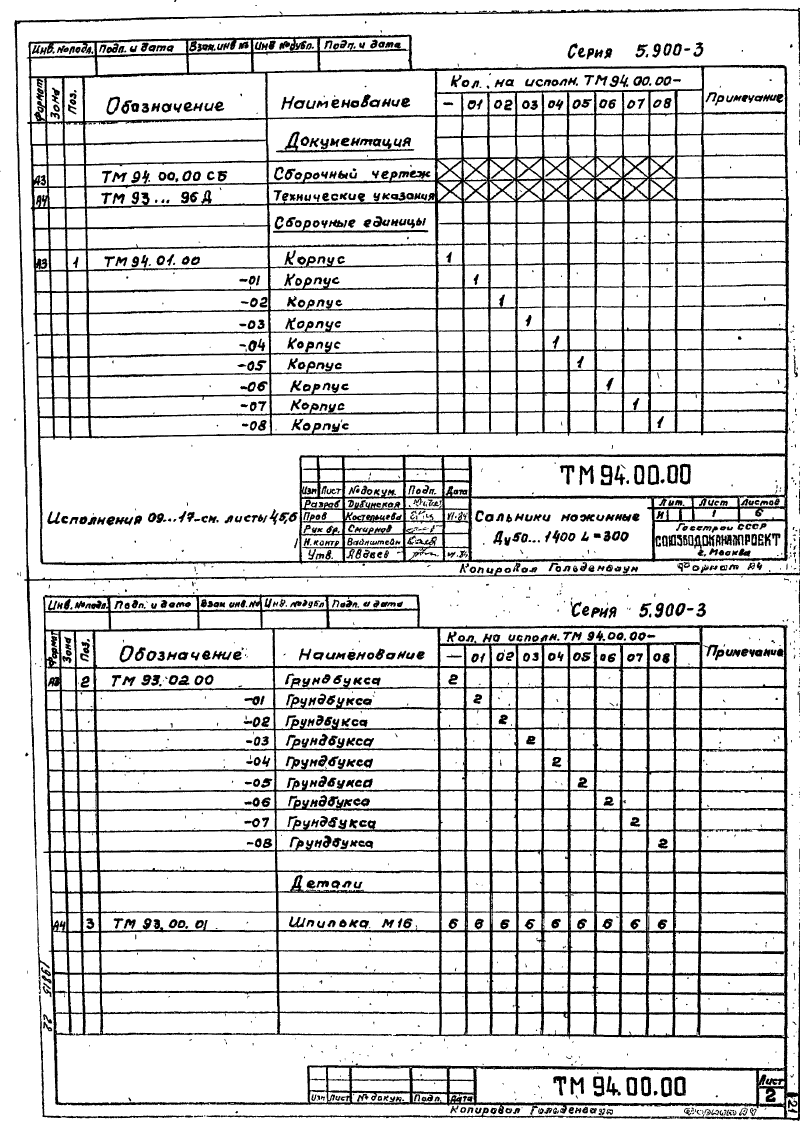 Инв. № подл. Подп. и дата Взам. инв № Инв № дубл. Подп. и дата
Серия 5.900-3
Формат Зона Поз. Обозначение Наименование Кол. на исполн. ТМ 94.00.00– Примечание
– 01 02 03 04 05 06 07 08
Документация
А3 ТМ 94.00.00 СБ Сборочный чертеж
А4 ТМ 93... 96 Д Технические указания
Сборочные единицы
А3 1 ТМ 94.01.00 Корпус 1
-01 Корпус 1
-02 Корпус 1
-03 Корпус 1
-04 Корпус 1
-05 Корпус 1
-06 Корпус 1
-07 Корпус 1
-08 Корпус 1
Исполнения 09...17-см. листы 4,5,6
ТМ 94.00.00
Изм Лист № докум. Подп. Дата
Разраб Дубинская
Пров Костельцева
Рук бр. Смирнов
Н. контр Вайнштейн
Утв. Явдаев
Сальники нажимные
Ду 50...1400 L=300
Лит. Лист Листов
И 1 6
Госстрой СССР
СОЮЗВОДОКАНАЛПРОЕКТ
г. Москва
Копировал Гольденбаун Формат А4
Инв. № подл. Подп. и дата Взам инв. № Инв. № дубл Подп. и дата
Серия 5.900-3
Формат Зона Поз. Обозначение Наименование Кол. на исполн. ТМ 94.00.00– Примечание
– 01 02 03 04 05 06 07 08
А3 2 ТМ 93.02.00 Грундбукса 2
-01 Грундбукса 2
-02 Грундбукса 2
-03 Грундбукса 2
-04 Грундбукса 2
-05 Грундбукса 2
-06 Грундбукса 2
-07 Грундбукса 2
-08 Грундбукса 2
Детали
А4 3 ТМ 93.00.01 Шпилька М16 6 6 6 6 6 6 6 6 6
19815 22
ТМ 94.00.00
Лист
2
Изм Лист № докум. Подп. Дата
Копировал Гольденбаун Формат А4
21